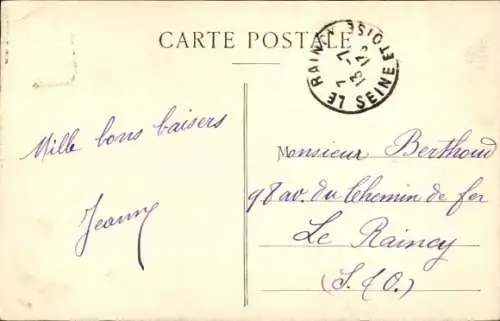 CARTE POSTALE
LE RAINCY
SEINE ET OISE
Mille bons baisers
Jeanne
Monsieur Berthoud
98 av. du Chemin de fer
Le Raincy
(S. & O.)